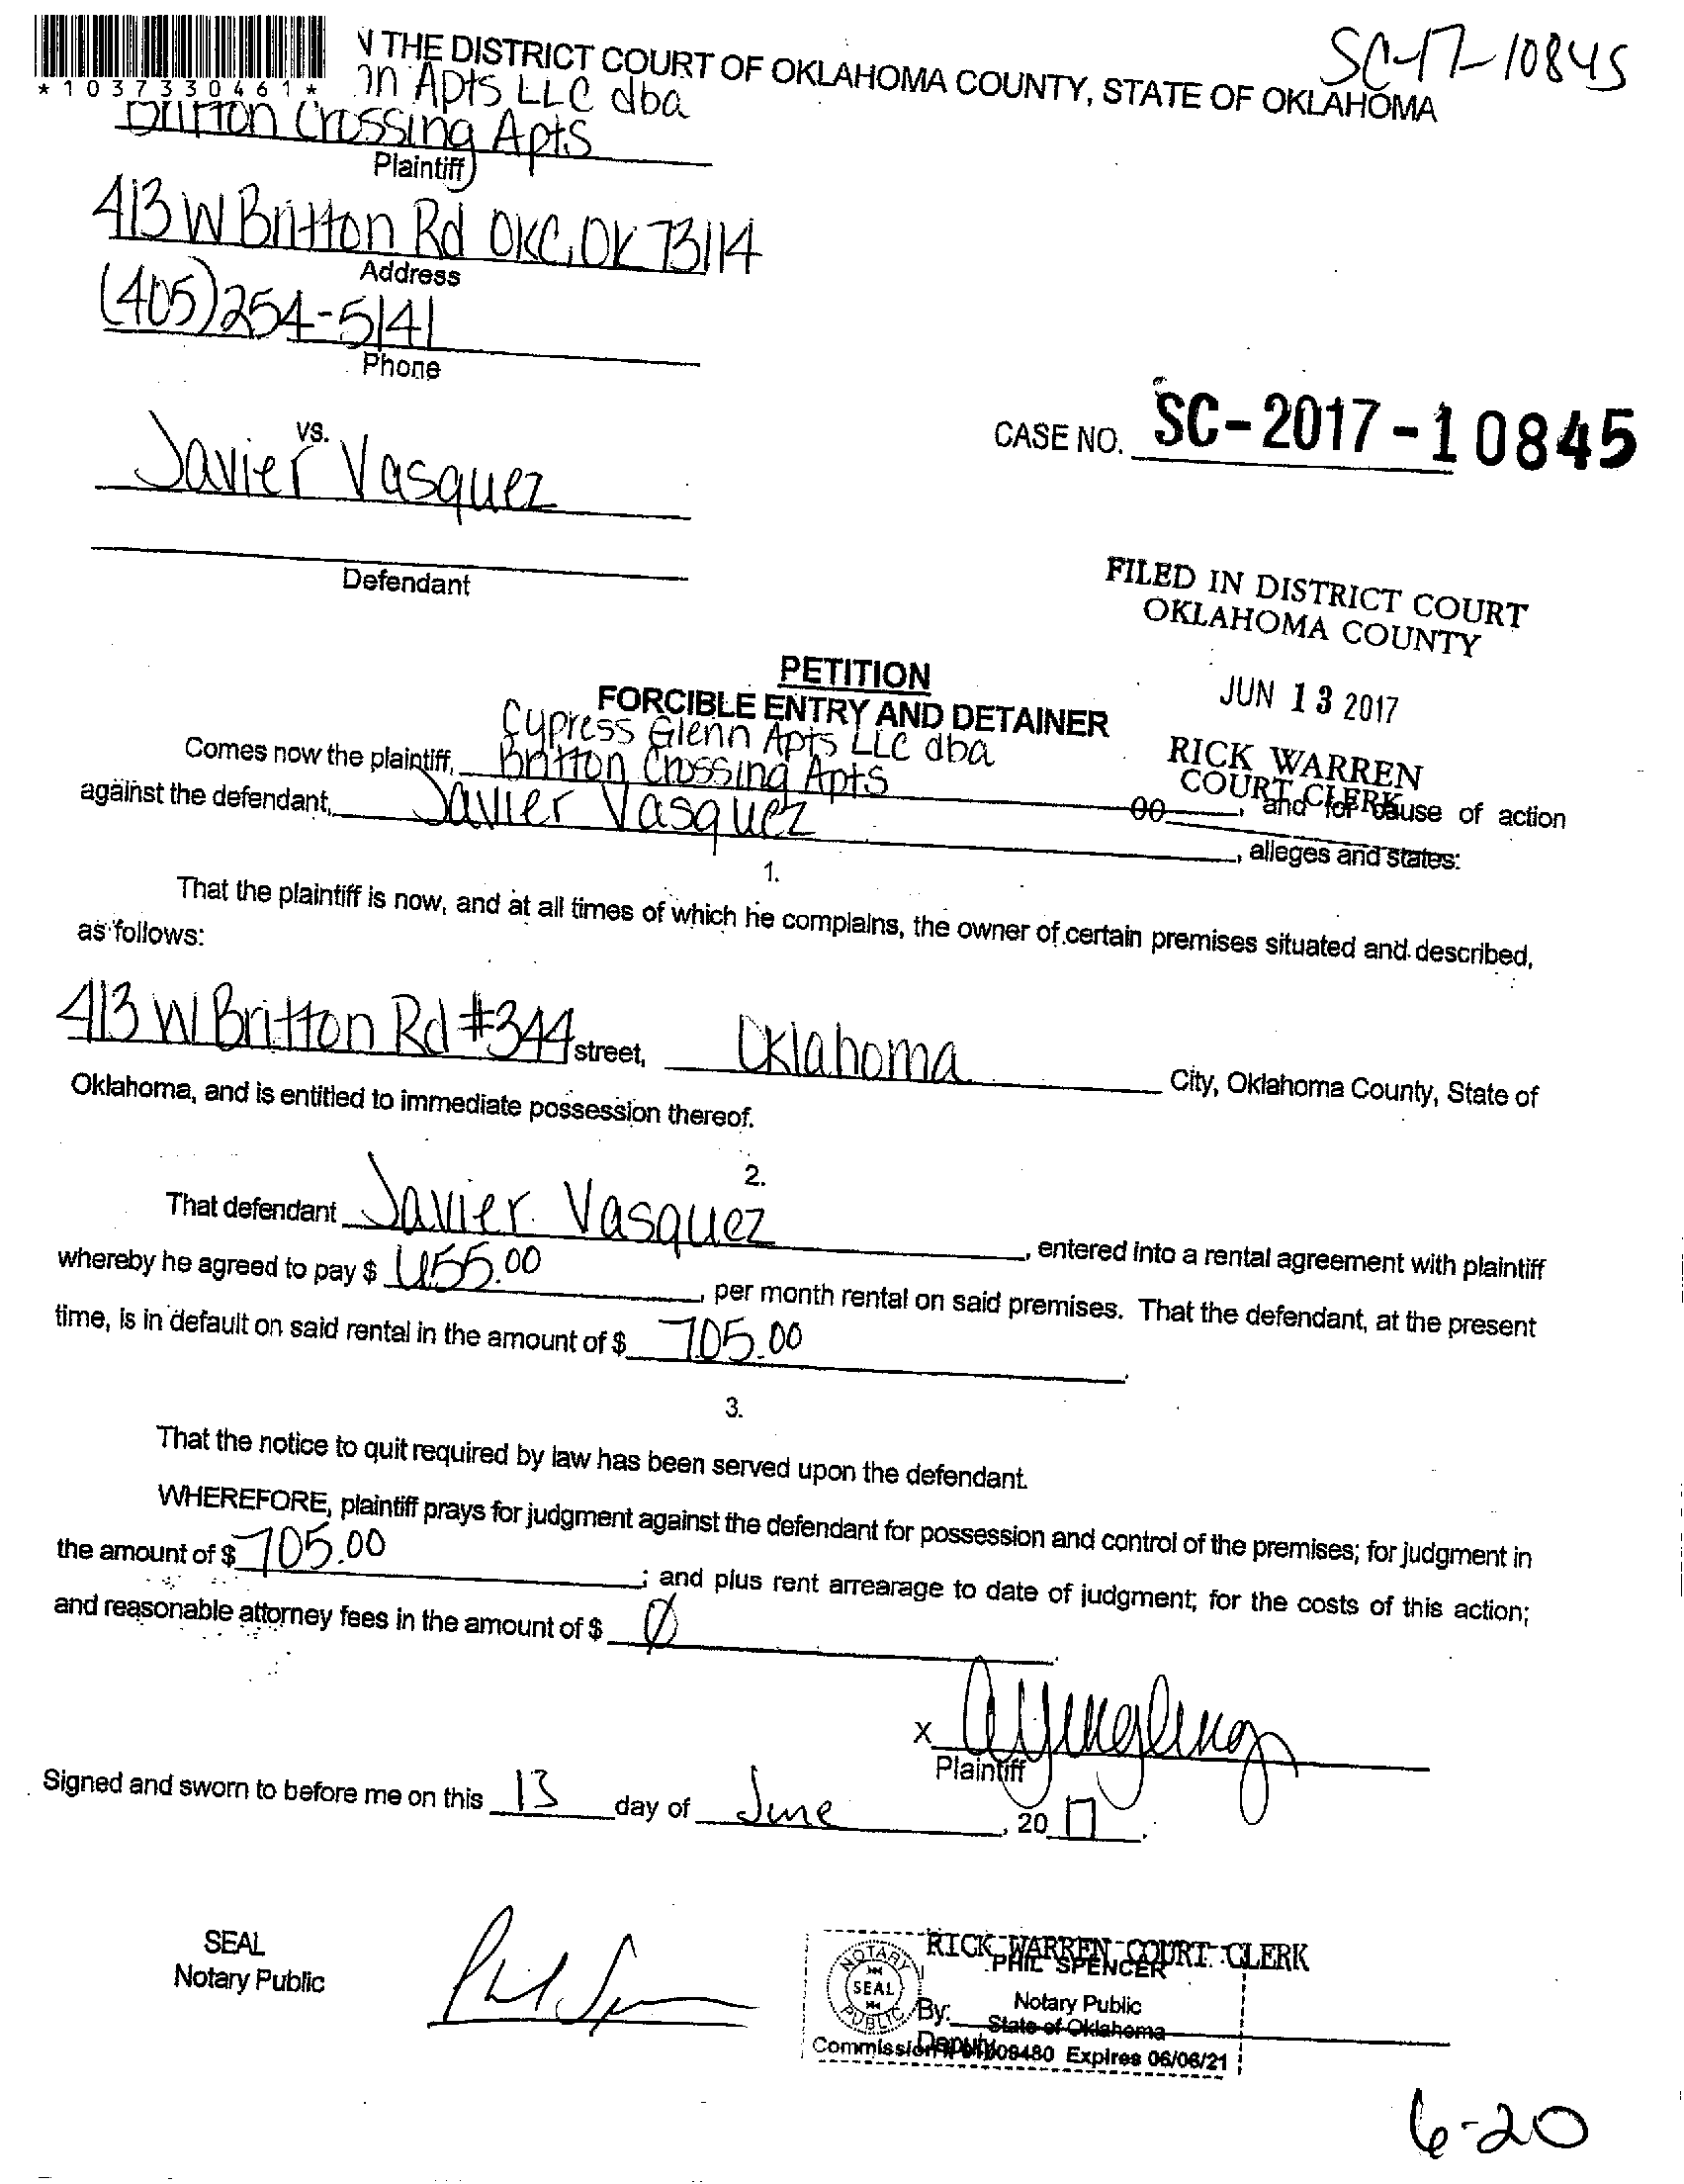 SC-17-10845
*1037330461*
N THE DISTRICT COURT OF OKLAHOMA COUNTY, STATE OF OKLAHOMA
Apts LLC dba
Britton Crossing Apts
Plaintiff
413 W Britton Rd OKC, OK 73114
Address
(405)254-5141
Phone
vs.
Javier Vasquez
CASE NO. SC-2017-10845
Defendant
FILED IN DISTRICT COURT
OKLAHOMA COUNTY
JUN 13 2017
RICK WARREN
COURT CLERK
PETITION
FORCIBLE ENTRY AND DETAINER
Cypress Glenn Apts LLC dba
Comes now the plaintiff, Britton Crossing Apts 00, and for cause of action
against the defendant, Javier Vasquez, alleges and states:
1.
That the plaintiff is now, and at all times of which he complains, the owner of certain premises situated and described,
as follows:
413 W Britton Rd #344 street, Oklahoma City, Oklahoma County, State of
Oklahoma, and is entitled to immediate possession thereof.
2.
That defendant Javier Vasquez, entered into a rental agreement with plaintiff
whereby he agreed to pay $ 655.00, per month rental on said premises. That the defendant, at the present
time, is in default on said rental in the amount of $ 705.00.
3.
That the notice to quit required by law has been served upon the defendant.
WHEREFORE, plaintiff prays for judgment against the defendant for possession and control of the premises; for judgment in
the amount of $ 705.00; and plus rent arrearage to date of judgment; for the costs of this action;
and reasonable attorney fees in the amount of $ Ø.
X
Plaintiff
Signed and sworn to before me on this 13 day of June, 2017.
SEAL
Notary Public
RICK WARREN COURT CLERK
PHIL SPENCER
NOTARY PUBLIC
SEAL
Notary Public
By:
State of Oklahoma
Deputy
Commission # Expires 06/06/21
6-20